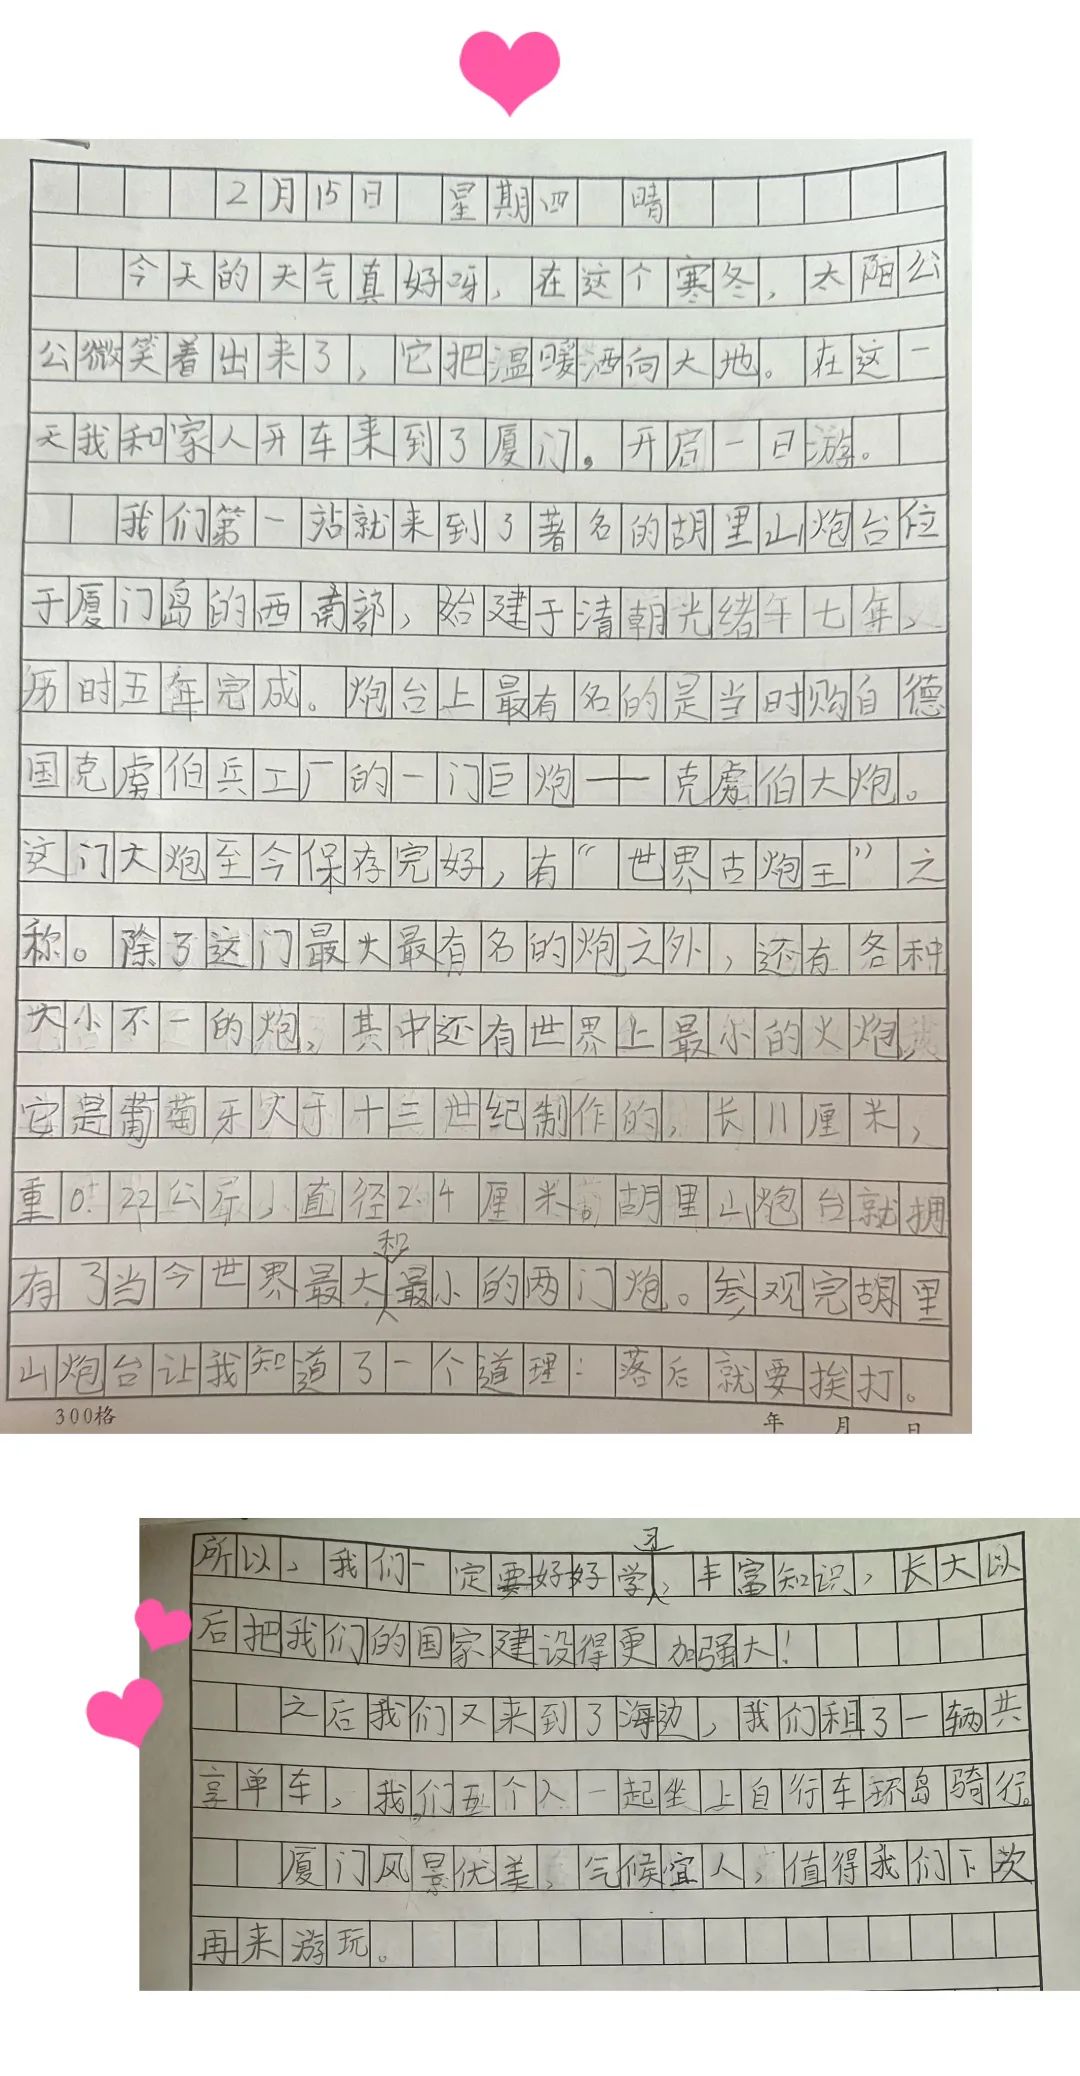 2月15日 星期四 晴
今天的天气真好呀,在这个寒冬,太阳公
公微笑着出来了,它把温暖洒向大地。在这一
天我和家人开车来到了厦门。开启一日游。
我们第一站就来到了著名的胡里山炮台位
于厦门岛的西南部,始建于清朝光绪年七年,
历时五年完成。炮台上最有名的是当时购自德
国克虏伯兵工厂的一门巨炮——克虏伯大炮。
这门大炮至今保存完好,有“世界古炮王”之
称。除了这门最大最有名的炮之外,还有各种
大小不一的炮,其中还有世界上最小的火炮,
它是葡萄牙人于十三世纪制作的,长11厘米,
重0.22公斤,直径2.4厘米。胡里山炮台就拥
有了当今世界最大和最小的两门炮。参观完胡里
山炮台让我知道了一个道理:落后就要挨打。
300格 年 月 日
所以,我们一定要好好学习,丰富知识,长大以
后把我们的国家建设得更加强大!
之后我们又来到了海边,我们租了一辆共
享单车,我们五个人一起坐上自行车环岛骑行。
厦门风景优美,气候宜人,值得我们下次
再来游玩。